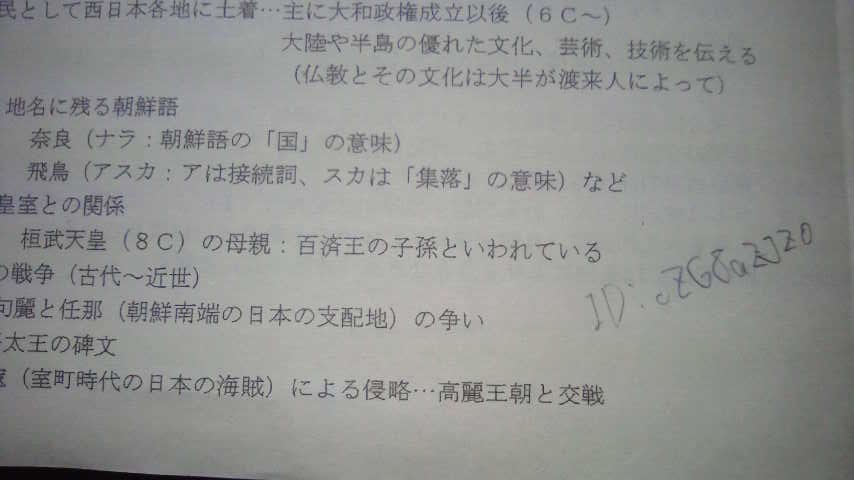 民として西日本各地に土着…主に大和政権成立以後（６Ｃ～）
大陸や半島の優れた文化、芸術、技術を伝える
（仏教とその文化は大半が渡来人によって）
地名に残る朝鮮語
奈良（ナラ：朝鮮語の「国」の意味）
飛鳥（アスカ：アは接続詞、スカは「集落」の意味）など
皇室との関係
桓武天皇（８Ｃ）の母親：百済王の子孫といわれている
の戦争（古代～近世）
句麗と任那（朝鮮南端の日本の支配地）の争い
太王の碑文
（室町時代の日本の海賊）による侵略…高麗王朝と交戦
ID:cZG8aZJz0